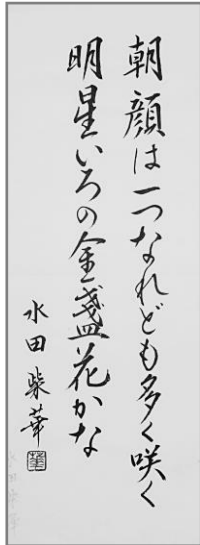 朝顔は一つなれども多く咲く
明星いろの金盞花かな
水田柴華
華